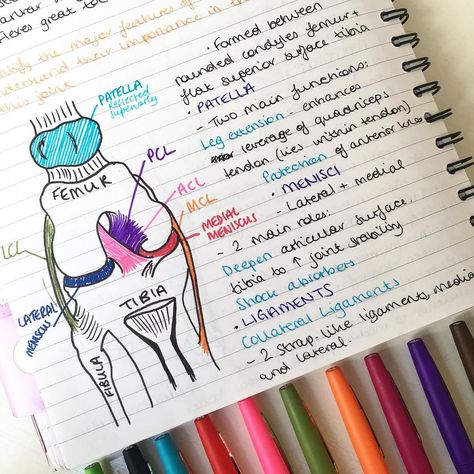 flexes great to
Identify the major features of
understand their importance in the
this joint
PATELLA
Reflected
superiorly
FEMUR
PCL
ACL
MCL
MEDIAL
MENISCUS
LCL
LATERAL
MENISCUS
TIBIA
FIBULA
• Formed between
rounded condyles femur +
flat superior surface tibia
• PATELLA
- Two main functions:
Leg extension - enhances
leverage of quadriceps
tendon (lies within tendon)
Protection of anterior knee
• MENISCI
- Lateral + medial
- 2 main roles:
Deepen articular surface
tibia to ↑ joint stability
Shock absorbers
• LIGAMENTS
Collateral Ligaments
- 2 strap-like ligaments, media
and lateral.